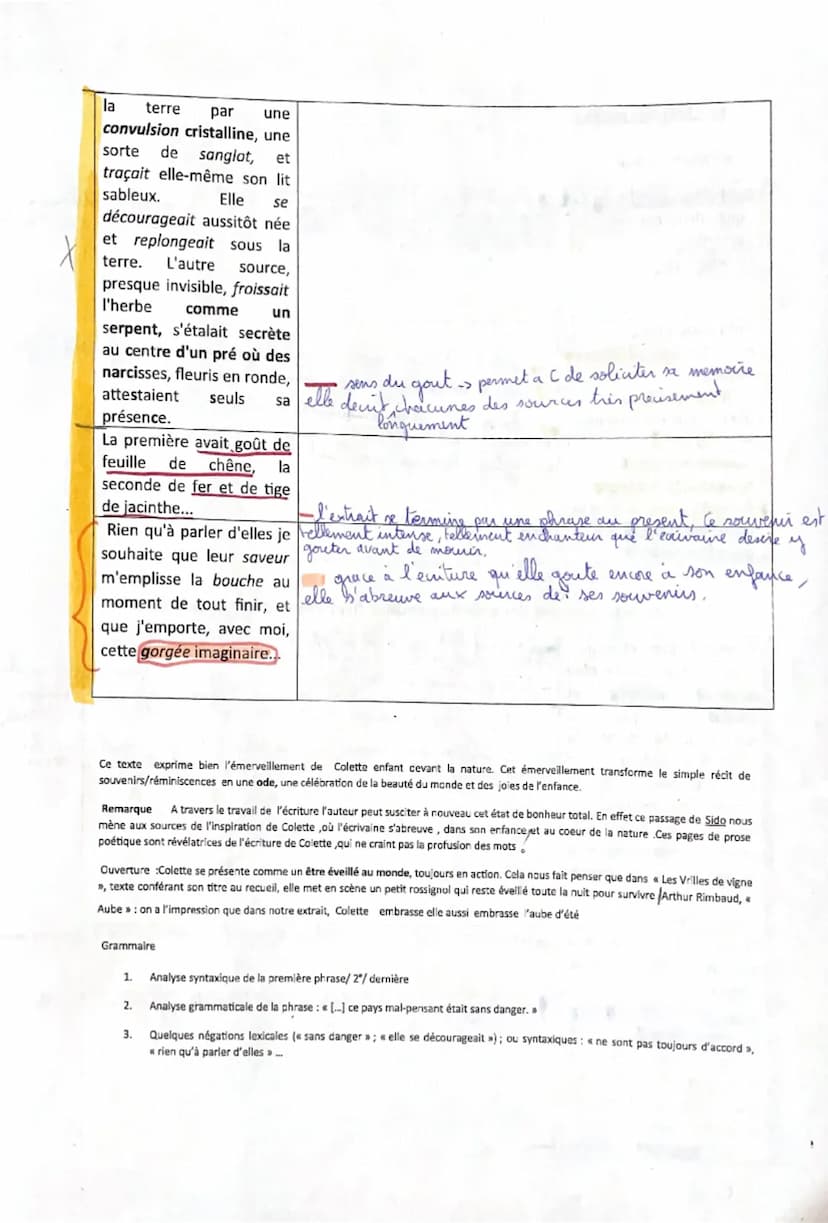 la terre par une
convulsion cristalline, une
sorte de sanglot, et
traçait elle-même son lit
sableux. Elle se
décourageait aussitôt née
et replongeait sous la
terre. L'autre source,
presque invisible, froissait
l'herbe comme un
serpent, s'étalait secrète
au centre d'un pré où des
narcisses, fleuris en ronde,
attestaient seuls sa
présence.
sens du gout -> permet a C de soliciter sa memoire
elle decrit, chacunes des sources très precisement
longuement
La première avait goût de
feuille de chêne, la
seconde de fer et de tige
de jacinthe...
Rien qu'à parler d'elles je
souhaite que leur saveur
m'emplisse la bouche au
moment de tout finir, et
que j'emporte, avec moi,
cette gorgée imaginaire...
l'extrait se termine par une phrase au present, Ce souvenir est
tellement intense, tellement enchanteur que l'ecrivaine desire y
gouter avant de mourir.
grace à l'ecriture qu'elle goute encore à son enfance,
elle s'abreuve aux sources de ses souvenirs.
Ce texte exprime bien l'émerveillement de Colette enfant cevant la nature. Cet émerveillement transforme le simple récit de
souvenirs/réminiscences en une ode, une célébration de la beauté du monde et des joies de l'enfance.
Remarque A travers le travail de l'écriture l'auteur peut susciter à nouveau cet état de bonheur total. En effet ce passage de Sido nous
mène aux sources de l'inspiration de Colette ,où l'écrivaine s'abreuve , dans son enfance,et au coeur de la nature .Ces pages de prose
poétique sont révélatrices de l'écriture de Colette ,qui ne craint pas la profusion des mots .
Ouverture :Colette se présente comme un être éveillé au monde, toujours en action. Cela nous fait penser que dans « Les Vrilles de vigne
», texte conférant son titre au recueil, elle met en scène un petit rossignol qui reste éveillé toute la nuit pour survivre /Arthur Rimbaud, «
Aube » : on a l'impression que dans notre extrait, Colette embrasse elle aussi embrasse l'aube d'été
Grammaire
1. Analyse syntaxique de la première phrase/ 2e/ dernière
2. Analyse grammaticale de la phrase : « [...] ce pays mal-pensant était sans danger. »
3. Quelques négations lexicales (« sans danger » ; « elle se décourageait ») ; ou syntaxiques : « ne sont pas toujours d'accord »,
« rien qu'à parler d'elles » ...